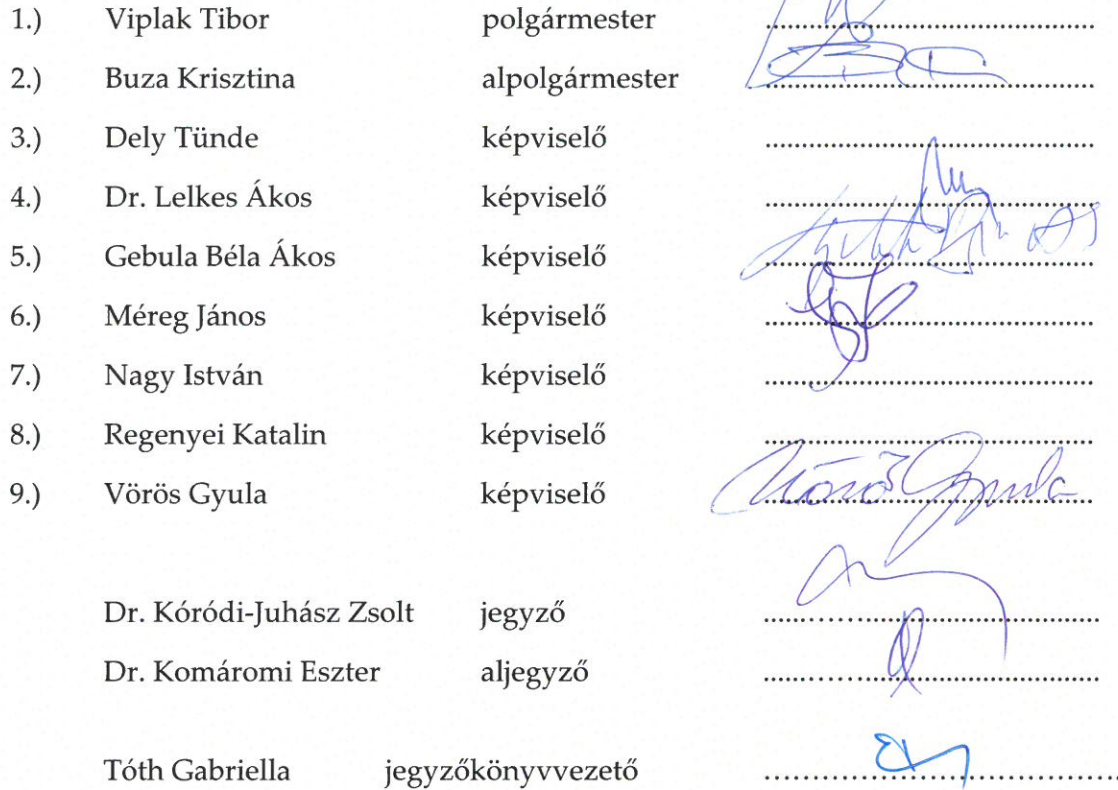 1.) Viplak Tibor polgármester ........................
2.) Buza Krisztina alpolgármester ........................
3.) Dely Tünde képviselő ........................
4.) Dr. Lelkes Ákos képviselő ........................
5.) Gebula Béla Ákos képviselő ........................
6.) Méreg János képviselő ........................
7.) Nagy István képviselő ........................
8.) Regenyei Katalin képviselő ........................
9.) Vörös Gyula képviselő Vörös Gyula
Dr. Kóródi-Juhász Zsolt jegyző ........................
Dr. Komáromi Eszter aljegyző ........................
Tóth Gabriella jegyzőkönyvvezető ........................